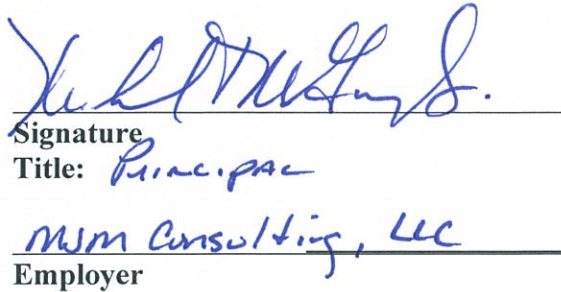 Signature
Title: Principal
MJM Consulting, LLC
Employer